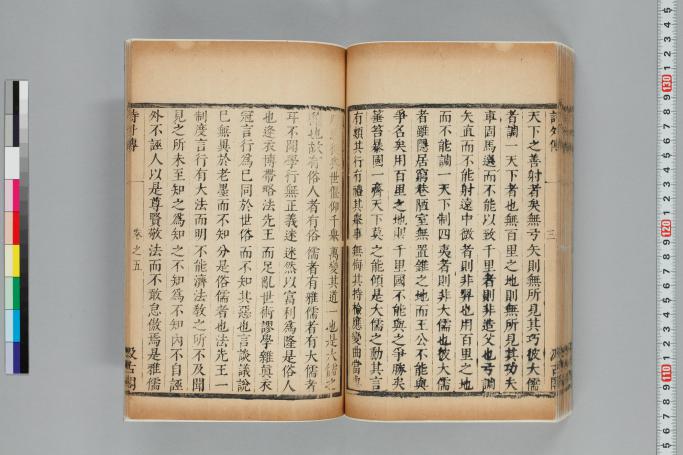 詩外傳 三 汲古閣
天下之善射者矣無弓矢則無所見其巧彼大儒
者調一天下者也無百里之地則無所見其功夫
車固馬選而不能以致千里者則非造父也弓調
矢直而不能射遠中微者則非羿也用百里之地
而不能調一天下制四夷者則非大儒也彼大儒
者雖隱居窮巷陋室無置錐之地而王公不能與
爭名矣用百里之地則千里國不能與之爭勝矣
箠笞暴國一齊天下莫之能傾是大儒之勳其言
有類其行有禮其舉事無悔其持檢應變曲當與
世偃仰千舉萬變其道一也是大儒之
也故有俗人者有俗儒者有雅儒者有大儒者
耳不聞學行無正義迷迷然以富利爲隆是俗人
也逢衣博帶略法先王而足亂世術謬學雜其衣
冠言行爲已同於世俗而不知其惡也言談議說
已無異於老墨而不知分是俗儒者也法先王一
制度言行有大法而明不能濟法敎之所不及聞
見之所未至知之爲知之不知爲不知內不自誣
外不誣人以是尊賢敬法而不敢怠傲焉是雅儒
詩外傳 卷之五 汲古閣